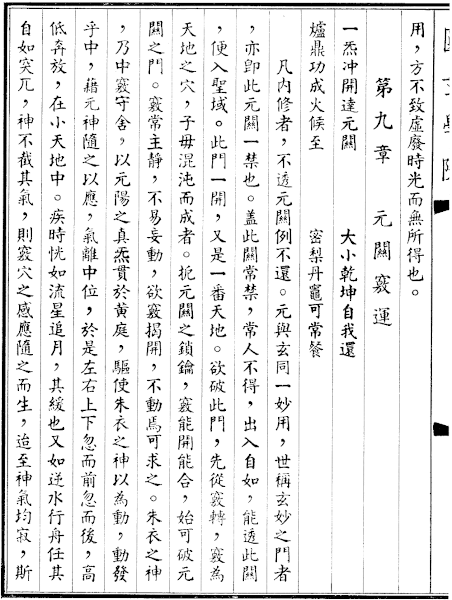 用，方不致虛廢時光而無所得也。
第九章　元關竅運
一炁冲開達元關　大小乾坤自我還
爐鼎功成火候至　密梨丹竈可常餐
凡內修者，不透元關例不還。元與玄同一妙用，世稱玄妙之門者
，亦卽此元關一禁也。蓋此關常禁，常人不得，出入自如，能透此關
，便入聖域。此門一開，又是一番天地。欲破此門，先從竅轉，竅為
天地之穴，子毋混沌而成者。扼元關之鎖鑰，竅能開能合，始可破元
關之門。竅常主靜，不易妄動，欲竅揭開，不動焉可求之。朱衣之神
，乃中竅守舍，以元陽之真炁貫於黃庭，驅使朱衣之神以為動，動發
乎中，藉元神隨之以應，氣離中位，於是左右上下忽而前忽而後，高
低奔放，在小天地中。疾時恍如流星追月，其緩也又如逆水行舟任其
自如突兀，神不截其氣，則竅穴之感應隨之而生，迨至神氣均寂，斯